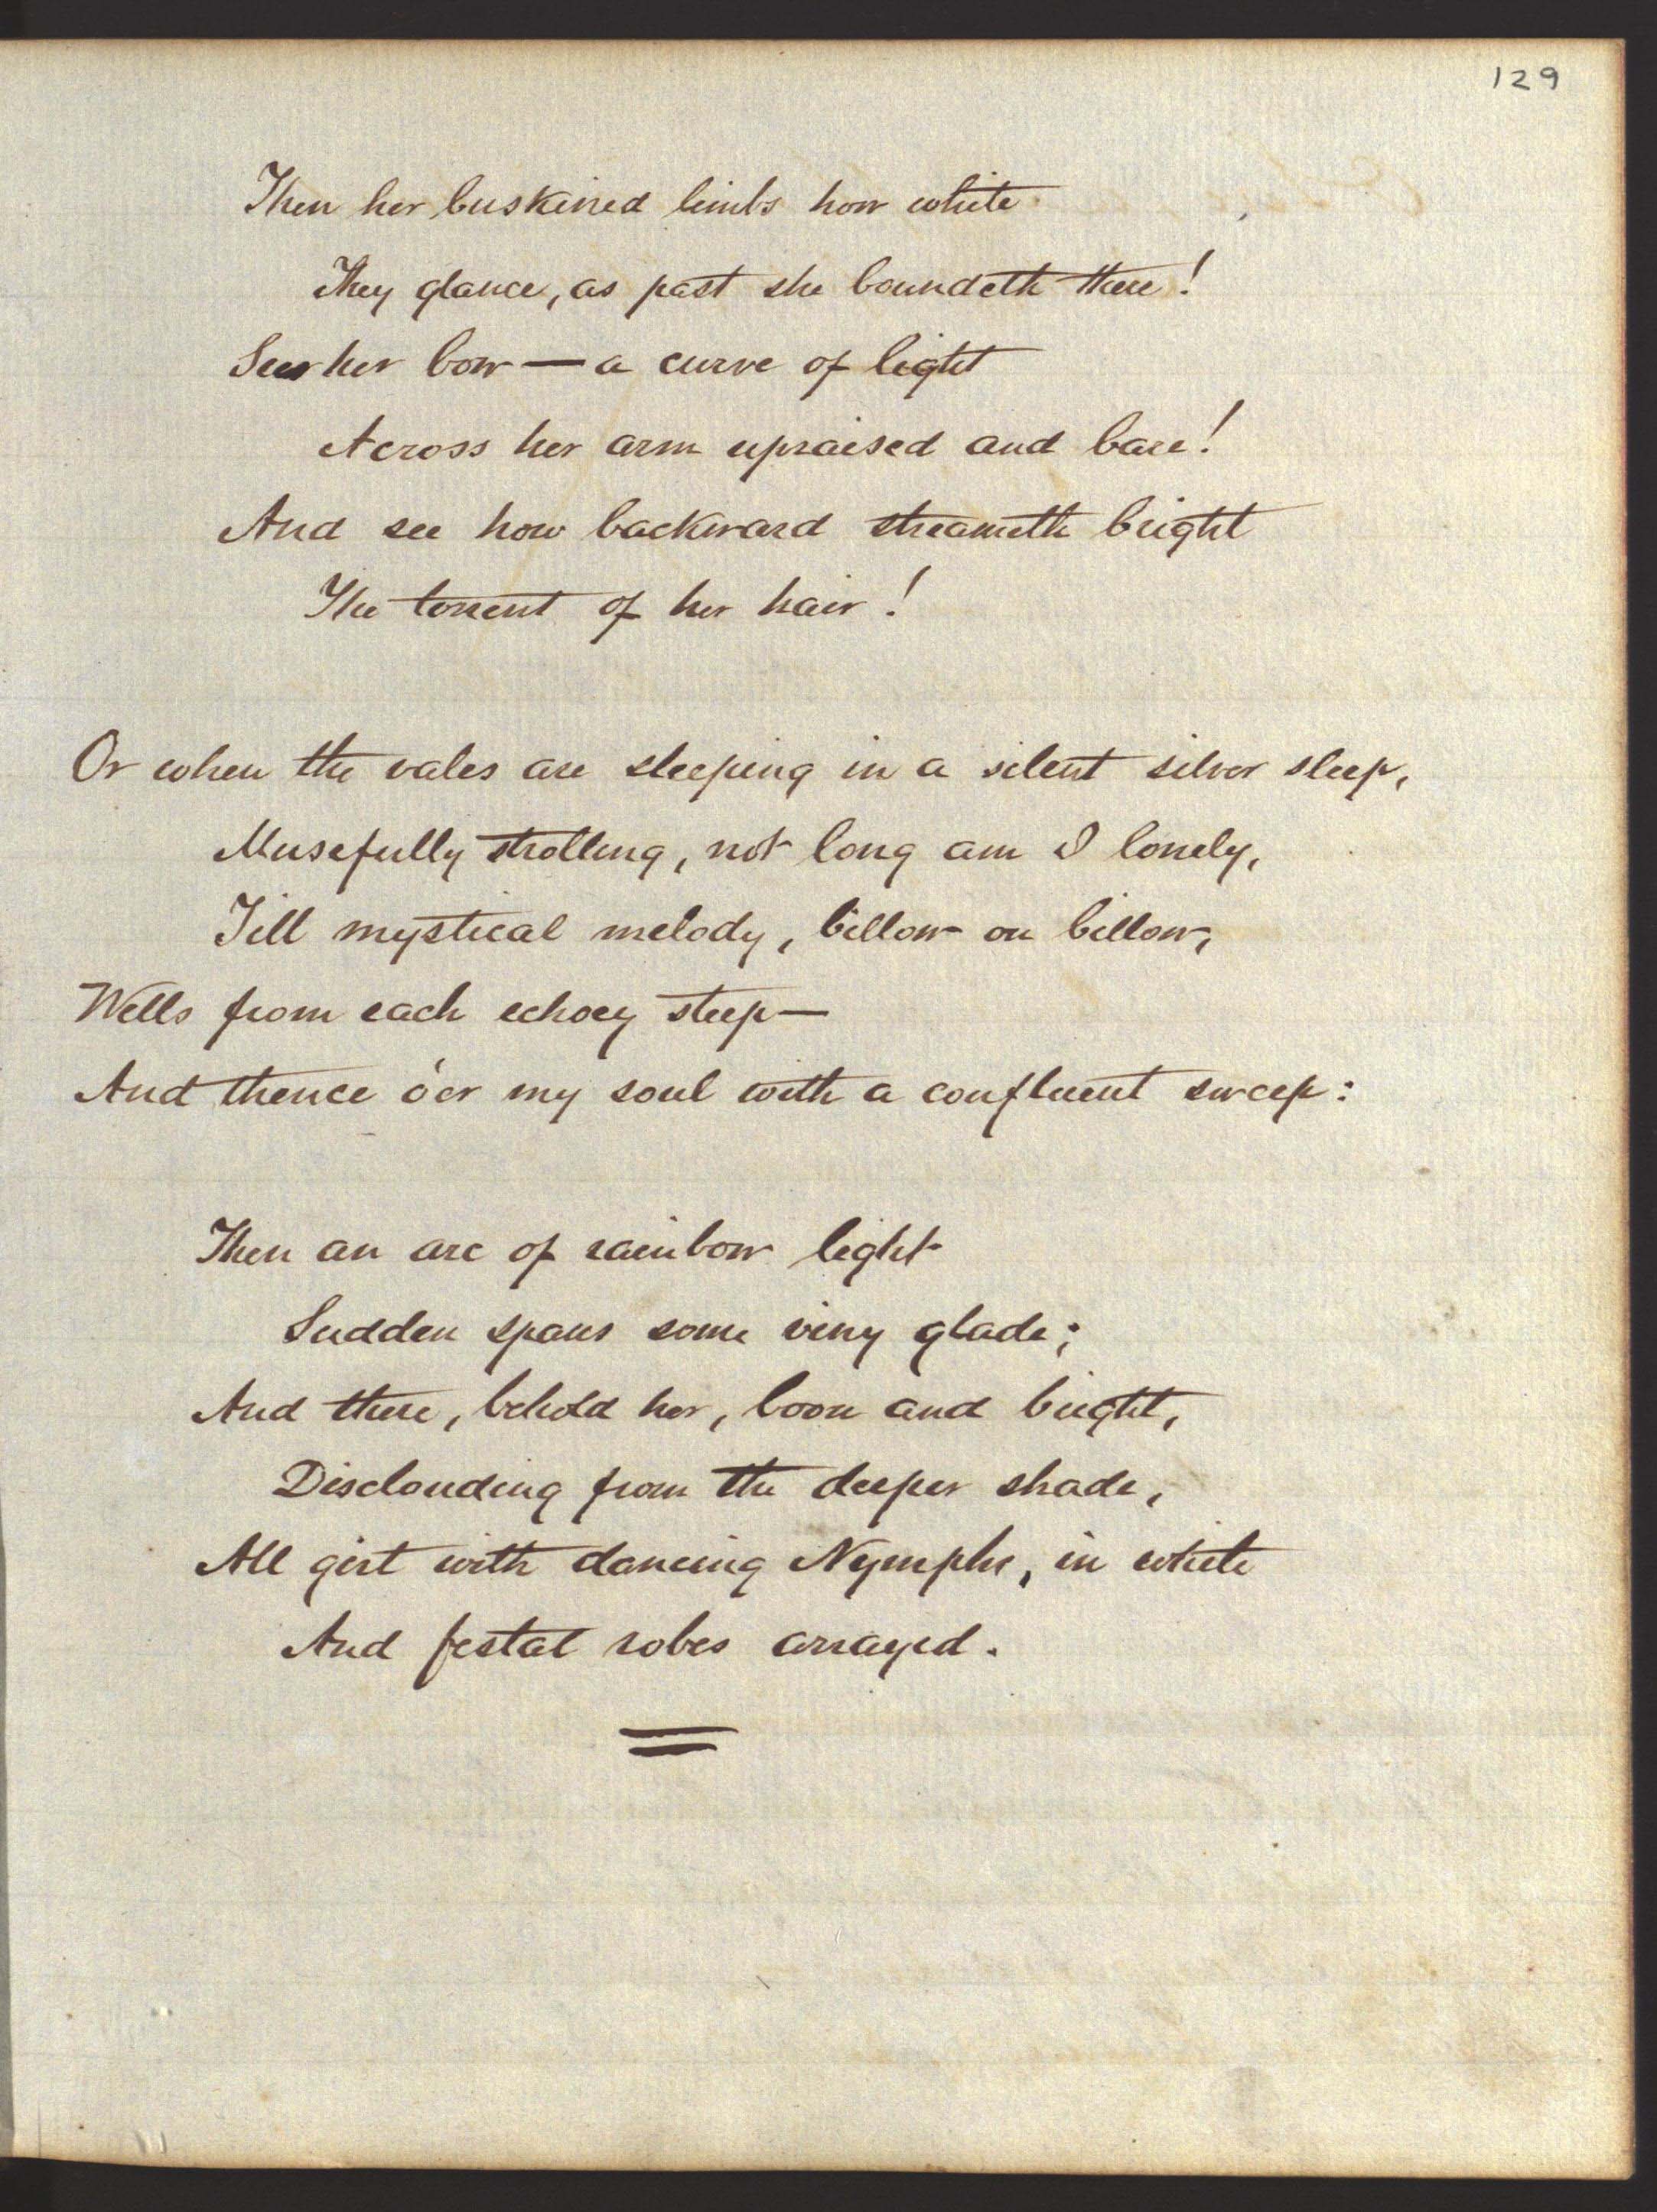 129
Then her buskined limbs how white
They glance, as past she boundeth there!
See her bow — a curve of light
Across her arm upraised and bare!
And see how backward streameth bright
The torrent of her hair!
Or when the vales are sleeping in a silent silver sleep,
Musefully strolling, not long am I lonely,
Till mystical melody, billow on billow,
Wells from each echoey steep—
And thence o'er my soul with a confluent sweep:
Then an arc of rainbow light
Sudden spans some viny glade;
And there, behold her, boon and bright,
Disclouding from the deeper shade,
All girt with dancing Nymphs, in white
And festal robes arrayed.